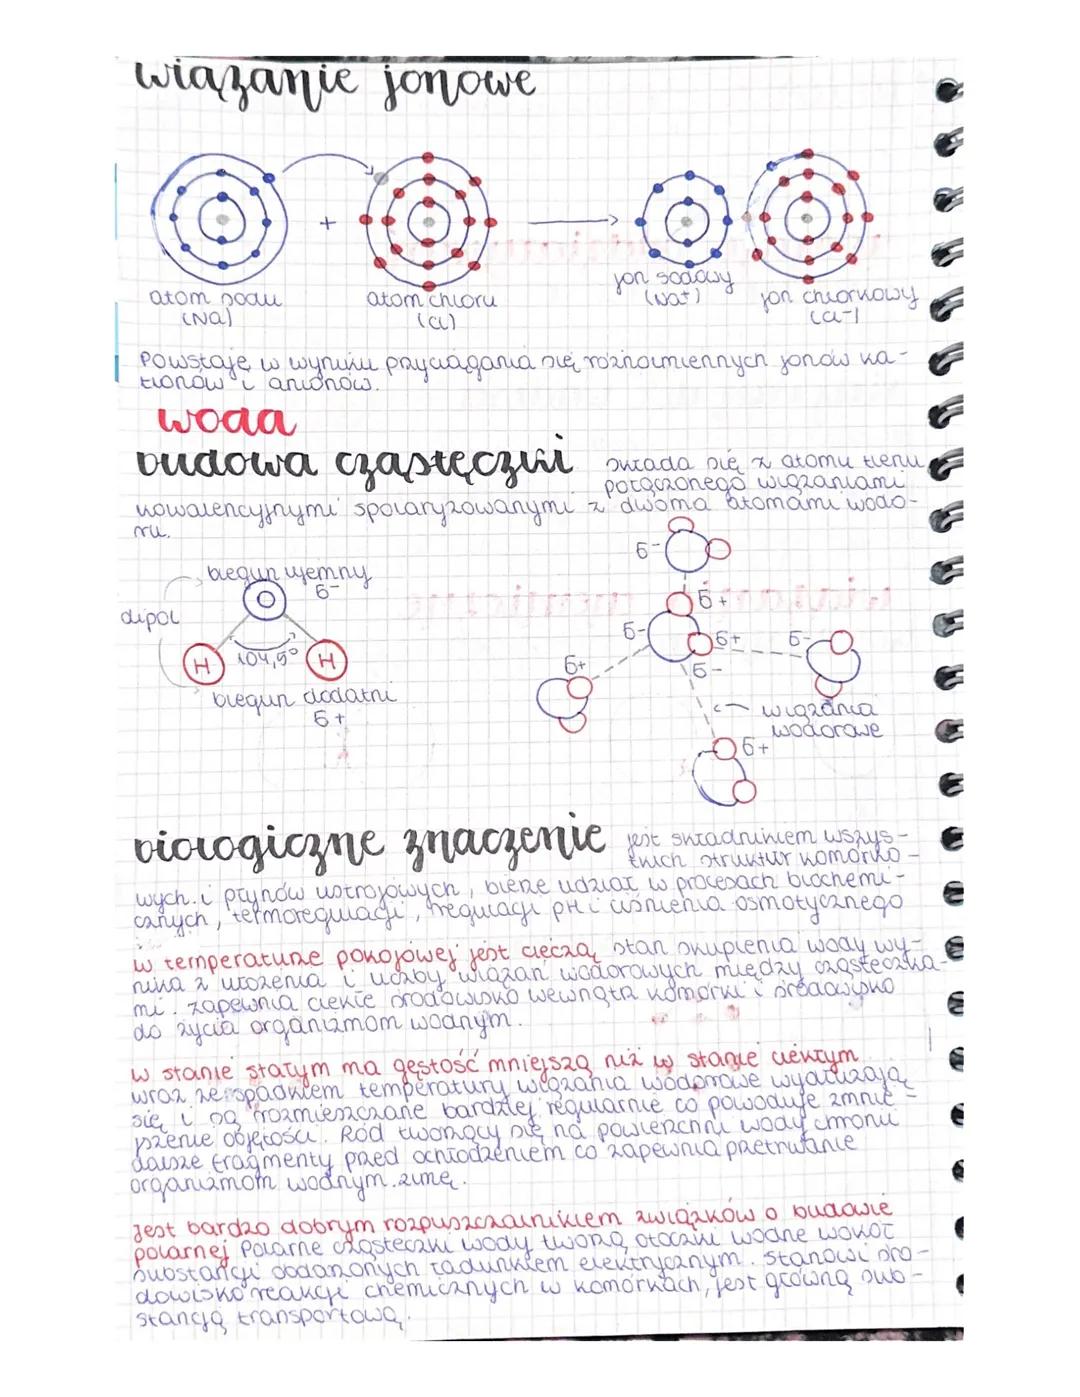 wiązanie jonowe
+
atom sodu
(Na)
atom chloru
(Cl)
jon sodowy
(Na+)
jon chlorkowy
(Cl-)
Powstaje w wyniku przyciągania się różnoimiennych jonów ka-
tionów i anionów.
woda
budowa cząsteczki składa się z atomu tlenu
połączonego wiązaniami
kowalencyjnymi spolaryzowanymi z dwoma atomami wodo-
ru.
biegun ujemny
δ-
dipol
O
H 104,5° H
biegun dodatni
δ+
δ-
δ+
δ-
δ+
δ-
δ+
δ-
wiązania
wodorowe
δ+
biologiczne znaczenie jest składnikiem wszys-
tkich struktur komórko-
wych i płynów ustrojowych, bierze udział w procesach biochemi-
cznych, termoregulacji, regulacji pH i ciśnienia osmotycznego
w temperaturze pokojowej jest cieczą stan skupienia wody wy-
nika z ułożenia i liczby wiązań wodorowych między cząsteczka-
mi. zapewnia ciekłe środowisko wewnątrz komórki i środowisko
do życia organizmom wodnym.
w stanie stałym ma gęstość mniejszą niż w stanie ciekłym
wraz ze spadkiem temperatury wiązania wodorowe wydłużają
się i są rozmieszczane bardziej regularnie co powoduje zmnie-
jszenie objętości. Lód tworzący się na powierzchni wody chroni
dalsze fragmenty przed ochłodzeniem co zapewnia przetrwanie
organizmom wodnym zimę.
Jest bardzo dobrym rozpuszczalnikiem związków o budowie
polarnej Polarne cząsteczki wody tworzą otoczki wodne wokół
substancji obdarzonych ładunkiem elektrycznym. Stanowi śro-
dowisko reakcji chemicznych w komórkach, jest główną sub-
stancją transportową.